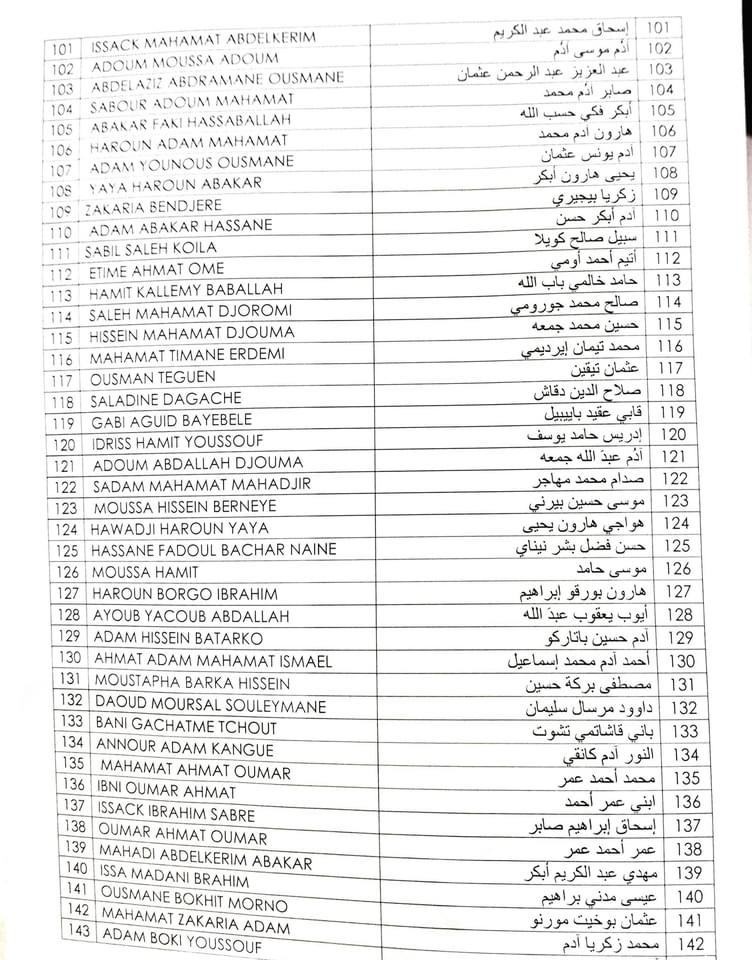 101 ISSACK MAHAMAT ABDELKERIM إسحاق محمد عبد الكريم 101
102 ADOUM MOUSSA ADOUM آدُم موسى آدُم 102
103 ABDELAZIZ ABDRAMANE OUSMANE عبد العزيز عبد الرحمن عثمان 103
104 SABOUR ADOUM MAHAMAT صابر آدُم محمد 104
105 ABAKAR FAKI HASSABALLAH أبكر فكي حسب الله 105
106 HAROUN ADAM MAHAMAT هارون آدم محمد 106
107 ADAM YOUNOUS OUSMANE آدم يونس عثمان 107
108 YAYA HAROUN ABAKAR يحيى هارون أبكر 108
109 ZAKARIA BENDJERE زكريا بيجيري 109
110 ADAM ABAKAR HASSANE آدم أبكر حسن 110
111 SABIL SALEH KOILA سبيل صالح كويلا 111
112 ETIME AHMAT OME أتيم أحمد أومي 112
113 HAMIT KALLEMY BABALLAH حامد خالمي باب الله 113
114 SALEH MAHAMAT DJOROMI صالح محمد جورومي 114
115 HISSEIN MAHAMAT DJOUMA حسين محمد جمعه 115
116 MAHAMAT TIMANE ERDEMI محمد تيمان إيرديمي 116
117 OUSMAN TEGUEN عثمان تيقين 117
118 SALADINE DAGACHE صلاح الدين دقاش 118
119 GABI AGUID BAYEBELE قابي عقيد باييبيل 119
120 IDRISS HAMIT YOUSSOUF إدريس حامد يوسف 120
121 ADOUM ABDALLAH DJOUMA آدُم عبد الله جمعه 121
122 SADAM MAHAMAT MAHADJIR صدام محمد مهاجر 122
123 MOUSSA HISSEIN BERNEYE موسى حسين بيرني 123
124 HAWADJI HAROUN YAYA هواجي هارون يحيى 124
125 HASSANE FADOUL BACHAR NAINE حسن فضل بشر نيناي 125
126 MOUSSA HAMIT موسى حامد 126
127 HAROUN BORGO IBRAHIM هارون بورقو إبراهيم 127
128 AYOUB YACOUB ABDALLAH أيوب يعقوب عبد الله 128
129 ADAM HISSEIN BATARKO آدم حسين باتاركو 129
130 AHMAT ADAM MAHAMAT ISMAEL أحمد آدم محمد إسماعيل 130
131 MOUSTAPHA BARKA HISSEIN مصطفى بركة حسين 131
132 DAOUD MOURSAL SOULEYMANE داوود مرسال سليمان 132
133 BANI GACHATME TCHOUT باني قاشاتمي تشوت 133
134 ANNOUR ADAM KANGUE النور آدم كانقي 134
135 MAHAMAT AHMAT OUMAR محمد أحمد عمر 135
136 IBNI OUMAR AHMAT ابني عمر أحمد 136
137 ISSACK IBRAHIM SABRE إسحاق إبراهيم صابر 137
138 OUMAR AHMAT OUMAR عمر أحمد عمر 138
139 MAHADI ABDELKERIM ABAKAR مهدي عبد الكريم أبكر 139
140 ISSA MADANI BRAHIM عيسى مدني براهيم 140
141 OUSMANE BOKHIT MORNO عثمان بوخيت مورنو 141
142 MAHAMAT ZAKARIA ADAM محمد زكريا آدم 142
143 ADAM BOKI YOUSSOUF